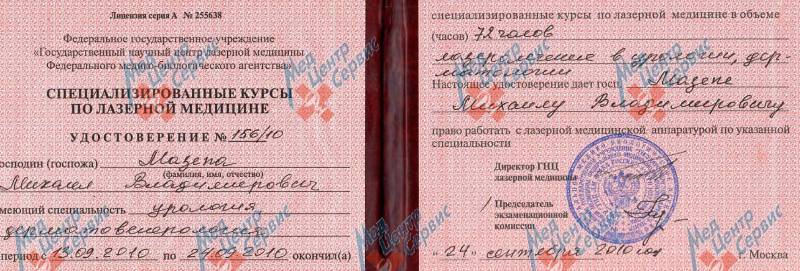 Лицензия серия А № 255638
Федеральное государственное учреждение
«Государственный научный центр лазерной медицины
Федерального медико-биологического агентства»
СПЕЦИАЛИЗИРОВАННЫЕ КУРСЫ
ПО ЛАЗЕРНОЙ МЕДИЦИНЕ
УДОСТОВЕРЕНИЕ № 156/10
осподин (госпожа) Мазепа
(фамилия, имя, отчество)
Михаил Владимирович
меющий специальность урология
дерматовенерология
период с 13.09.2010 по 24.09.2010 окончил(а)
специализированные курсы по лазерной медицине в объеме
(часов) 72 часов
лазеролечение в урологии, дер-
матологии
Настоящее удостоверение дает госп. Мазепе
Михаилу Владимировичу
право работать с лазерной медицинской аппаратурой по указанной
специальности
Директор ГНЦ
лазерной медицины
Председатель
экзаменационной
комиссии
"24" сентября 2010 год г. Москва
Мед Центр Сервис
Мед Центр Сервис
Мед Центр Сервис
Мед Центр Сервис
Мед Центр Сервис
Мед Центр Сервис